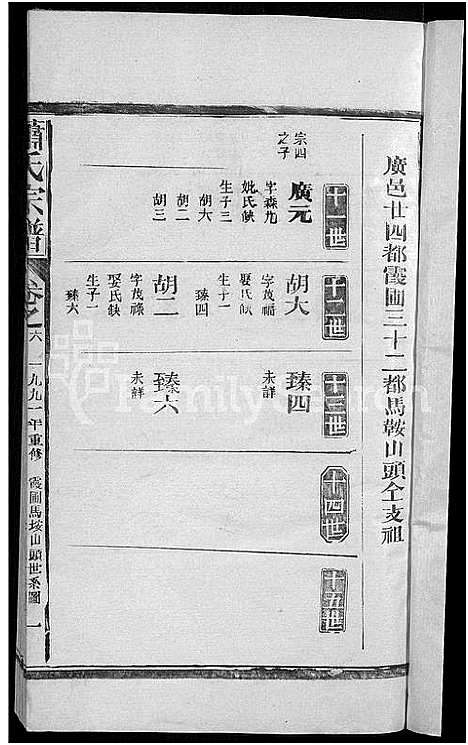 廣邑廿四都霞圃三十二都馬鞍山頭仝支祖
十一世
宗四
之子
廣元
字森九
妣氏缺
生子三
胡大
胡二
胡三
十二世
胡大
字茂福
娶氏缺
生子一
臻四
胡二
字茂祿
娶氏缺
生子一
臻大
十三世
臻四
未詳
臻六
未詳
十四世
十五世
蕭氏宗譜
卷之六
一九九一年重修
霞圃馬垵山頭世系圖
一
FamilySearch